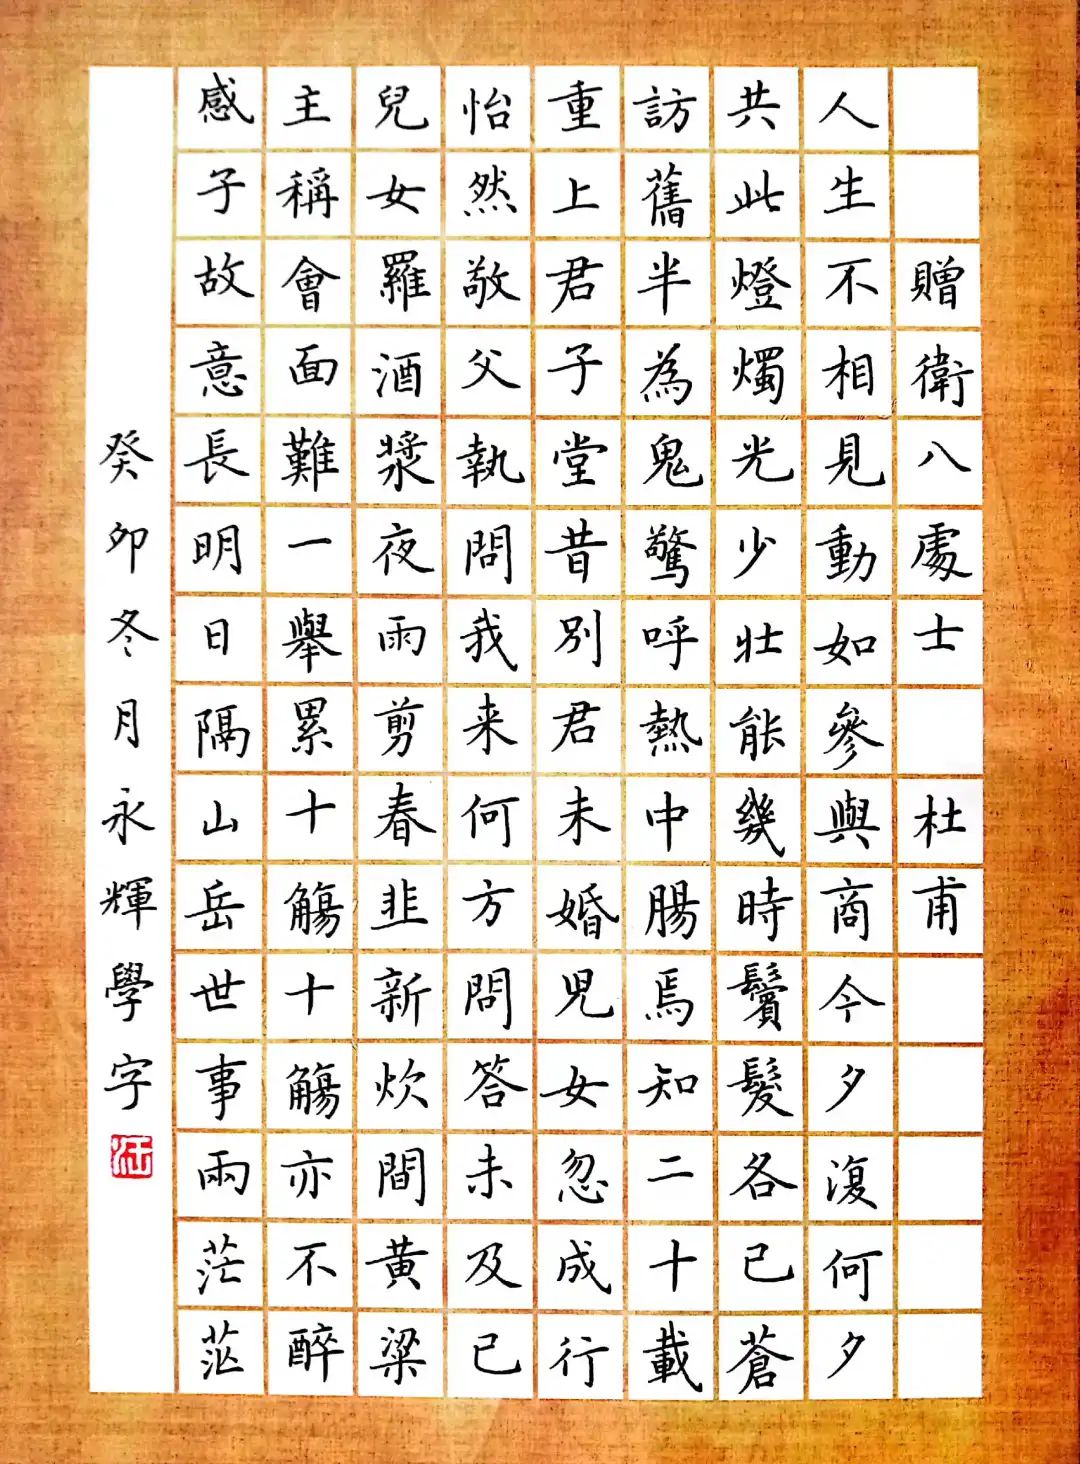 贈衛八處士 杜甫
人生不相見動如參與商今夕復何夕
共此燈燭光少壯能幾時鬢髮各已蒼
訪舊半為鬼驚呼熱中腸焉知二十載
重上君子堂昔別君未婚児女忽成行
怡然敬父執問我来何方問答未及已
兒女羅酒漿夜雨剪春韭新炊間黃粱
主稱會面難一舉累十觴十觴亦不醉
感子故意長明日隔山岳世事兩茫茫
癸卯冬月永輝學字
汪